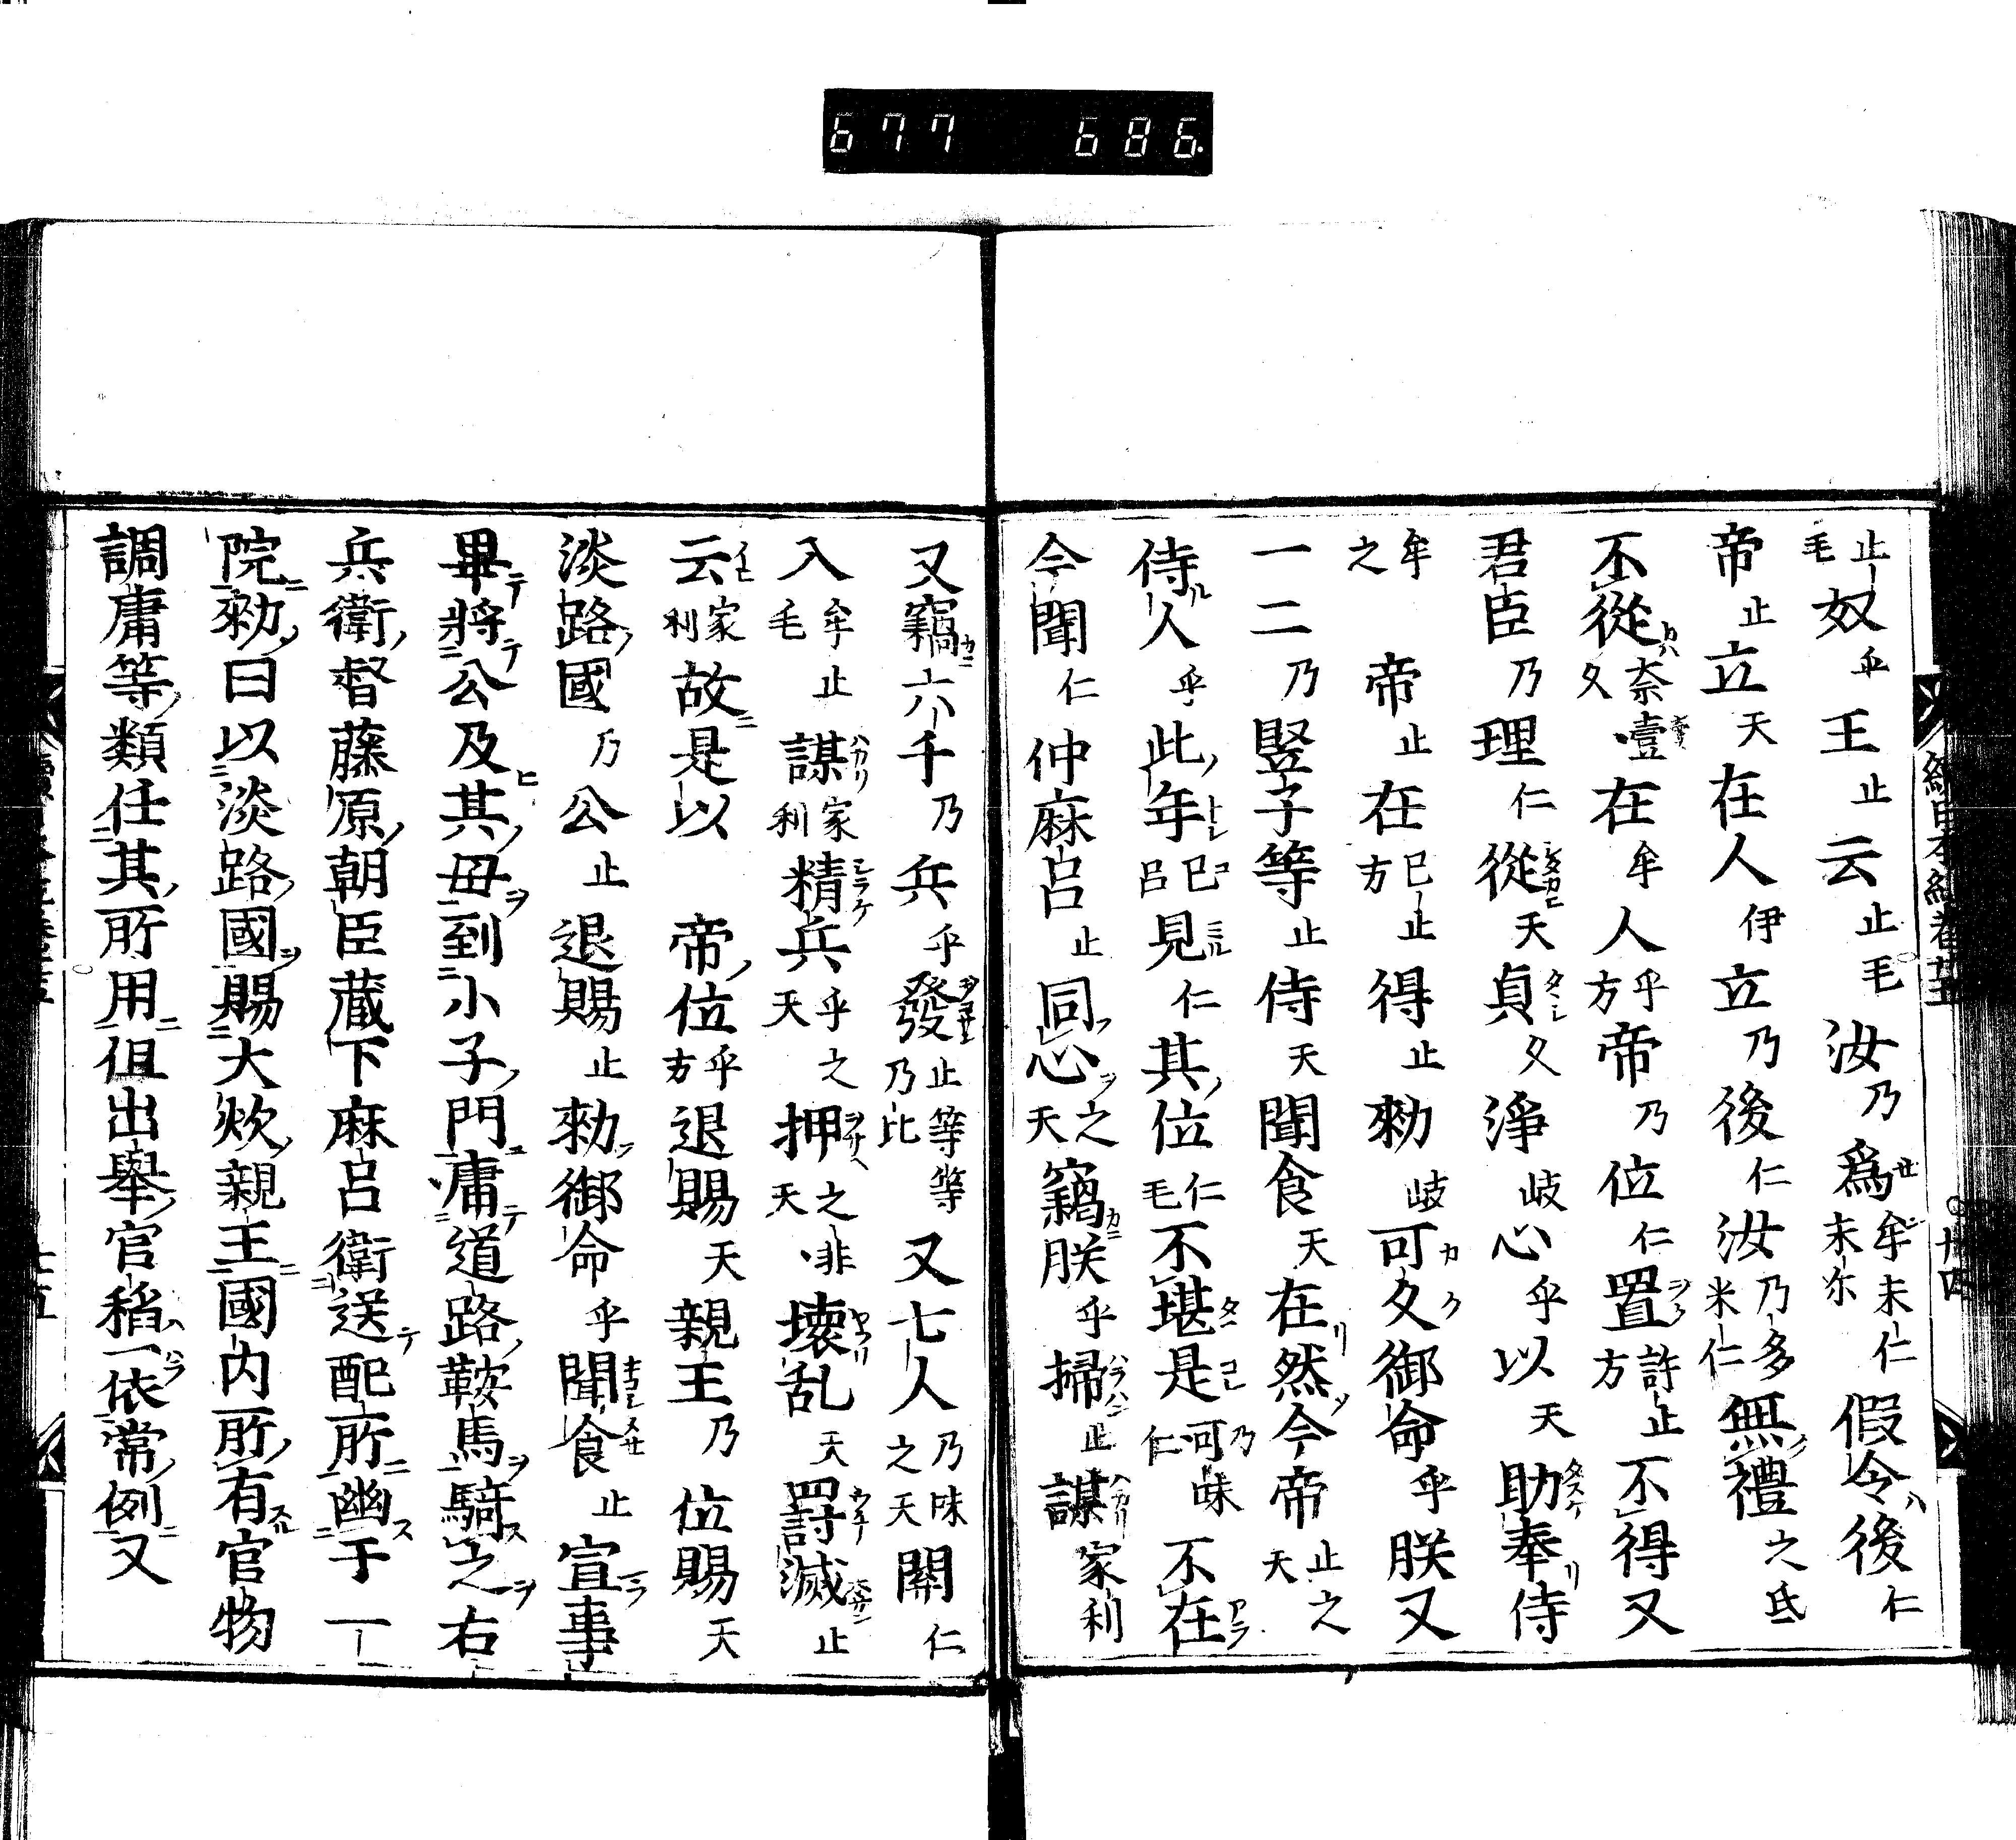 677 686
止毛奴乎王止云止毛汝乃爲牟未仁末尓假令後仁
帝止立天在人伊立乃後仁汝乃多米仁無禮之氐
不從奈久壹在牟人乎方帝乃位仁置許止方不得又
君臣乃理仁從天貞久淨岐心乎以天助奉侍
牟之帝止在已止方得止勅岐可久御命乎朕又
一二乃竪子等止侍天聞食天在然今帝止之天
侍人乎此年己呂見仁其位仁毛不堪是乃味仁可不在
今聞仁仲麻呂止同心之天竊朕乎掃止謀家利
又竊六千乃兵乎發止等乃比等又七人乃味之天關仁
入牟止毛謀家利精兵乎天之押之天非壞乱天罸滅止
云家利故是以帝位乎方退賜天親王乃位賜天
淡路國乃公止退賜止勅御命乎聞食止宣事
畢將公及其毋到小子門庸道路鞍馬騎之右
兵衛督藤原朝臣蔵下麻呂衛送配所幽于一
院勅曰以淡路國賜大炊親王國内所有官物
調庸等類任其所用但出舉官稲一依常例又